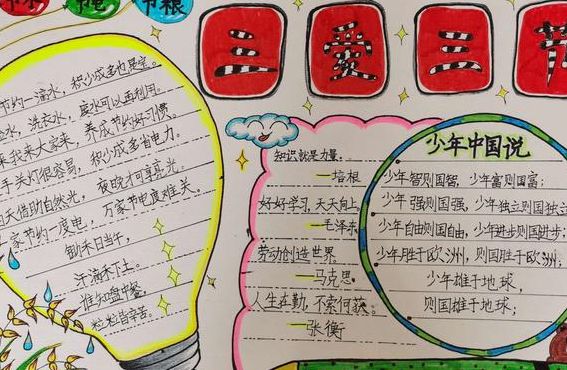 节水 节电 节粮
三爱三节
节约一滴水，积少成多也是宗。
水，洗衣水，废水可以再利用。
来我来大家来，养成节约好习惯。
手关灯很容易，积少成多省电力。
天借助自然光，夜晚才何享亮光，
家节约一度电，万家节电度难关。
锄禾日当午，
汗滴禾下土。
谁知盘中餐
粒粒皆辛苦。
知识就是力量。
——培根
好好学习，天天向上
——毛泽东
劳动创造世界
——马克思
人生在勤，不索何获。
——张衡
少年中国说
少年智则国智，少年富则国富；
少年强则国强，少年独立则国独立
少年自由则国自由，少年进步则国进步；
少年胜于欧洲，则国胜于欧洲，
少年雄于地球，
则国雄于地球；